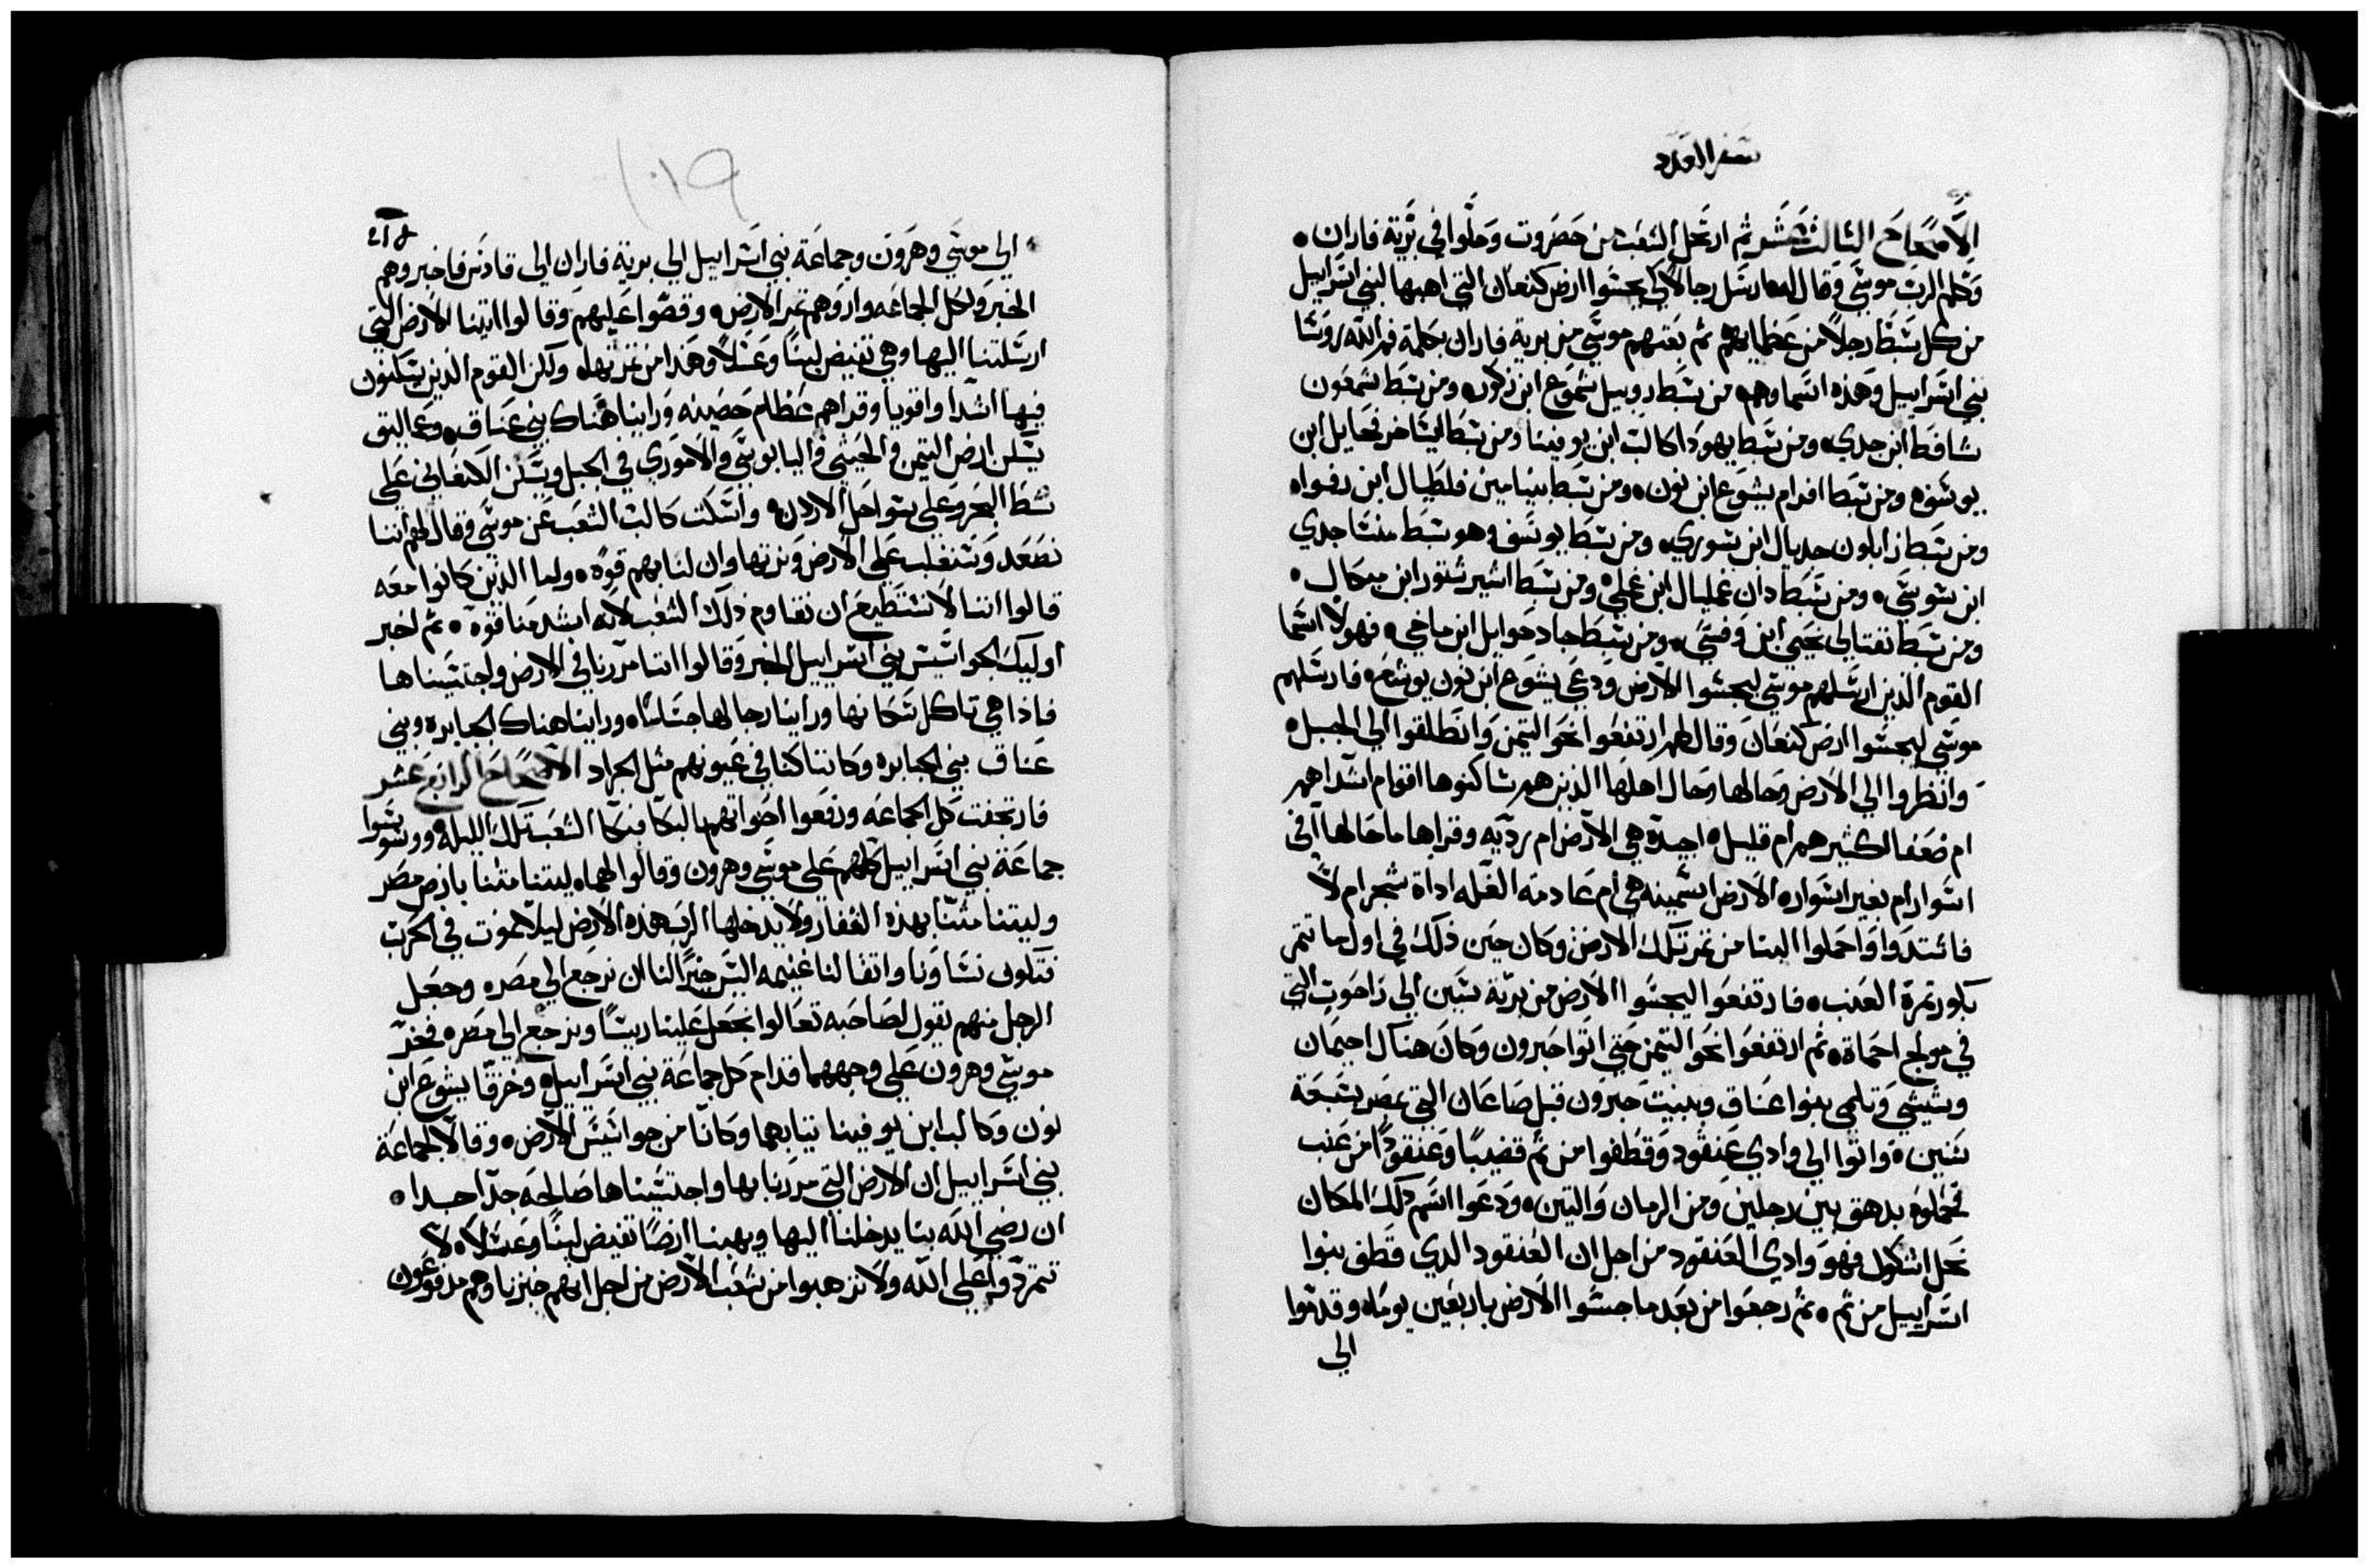 سفر العدد
الاصحاح الثالث عشر ثم ارتحل الشعب من حصروت وحلوا في برية فاران
وكلم الرب موسي وقال له ارسل رجالا كي يجسوا ارض كنعان التي اهبها لبني اسراييل
من كل سبط رجلا من عظمايهم ثم بعتهم موسي من برية فاران بكلمة فم الله روسا
بني اسراييل وهذه اسماوهم من سبط روبيل شموع ابن زكور ومن سبط شمعون
سافط ابن حدي ومن سبط يهودا كالب ابن يوفينا ومن سبط ايساخر فحايل ابن
يوسف ومن سبط افرام يشوع ابن نون ومن سبط بنيامين فلطيال ابن رفوا
ومن سبط زابلون جديال ابن سوري ومن سبط يوسف وهو سبط منسا جدي
ابن سوسي ومن سبط دان عمليال ابن غملي ومن سبط اشير شتور ابن ميكال
ومن سبط نفتالي نحبي ابن وفسي ومن سبط جاد حوايل ابن ماخي فهولا اسما
القوم الذين ارسلهم موسي ليجسوا الارض ودعي يشوع ابن نون يوشع فارسلهم
موسي ليجسوا ارض كنعان وقال لهم ارتفعوا نحو التيمن وانطلقوا الي الجبل
وانظروا الي الارض وحالها وحال اهلها الذين هم ساكنوها اقوام اشدا هم
ام ضعفا الكثير هم ام قليل اجيدة هي الارض ام رديه وقراها ما حالها افي
اسوار ام بغير اسوار الارض اسمينه هي ام عادمة الغله اداة شجر ام لا
فاشتدوا واحملوا الينا من ثمر تلك الارض وكان حين ذلك في اول ما تتمر
بكور ثمرة العنب فارتفعوا ليجسوا الارض من برية سين الي راحوب التي
في مولج احماة ثم ارتفعوا نحو التيمن حتي اتوا حبرون وكان هناك احيمان
وسيسي وتلمي بنوا عناق وبنيت حبرون قبل صاعان التي بمصر بسبعة
سنين واتوا الي وادي عنقود وقطفوا من ثم قضيبا وعنقودا من عنب
فحملوه بدهق بين رجلين ومن الرمان والتين ودعوا اسم ذلك المكان
نحل اسكول فهو وادي العنقود من اجل ان العنقود الدي قطف بنوا
اسراييل من ثم ثم رجعوا من بعد ما جسوا الارض باربعين يوما وقدموا
الي
١٠١٩
الي موسي وهرون وجماعة بني اسراييل الي برية فاران الي قادس فاخبروهم
الخبر ولكل الجماعه واروهم ثمر الارض وقصوا عليهم وقالوا اتينا الارض التي
ارسلتنا اليها وهي تفيض لبنا وعسلا وهذا من ثمرتها ولكن القوم الذين يسكنون
فيها اشدا واقويا وقراهم عظام حصينه وراينا هناك بني عناق وعماليق
يسكن ارض التيمن والحيثي واليابوسي والاموري في الجبل ويسكن الكنعاني علي
شط البحر وعلي سواحل الاردن واسكت كالب الشعب عن موسي وقال لهم اننا
نصعد ونتغلب علي الارض ونرتها وان لنا بهم قوة واما الذين كانوا معه
قالوا اننا لا نستطيع ان نقاوم ذلك الشعب لانه اشد منا قوة ثم اخبر
اوليك الجواسيس بني اسراييل الخبر وقالوا اننا مررنا في الارض واجتسيناها
فاذا هي تاكل سكانها وراينا رجالها جساما وراينا هناك الجبابره وبني
عناق بني الجبابره وكاننا كنا في عيونهم مثل الجراد الاصحاح الرابع عشر
فارتجفت كل الجماعه ورفعوا اصواتهم بالبكا فبكا الشعب تلك الليله ووسوسوا
جماعة بني اسراييل كلهم علي موسي وهرون وقالوا لهما ليتنا متنا بارض مصر
وليتنا متنا بهذه القفار ولا يدخلنا الرب هذه الارض ليلا نموت في الحرب
فتكون نساونا واتقالنا غنيمه اليس خيرا لنا ان نرجع الي مصر وجعل
الرجل منهم يقول لصاحبه تعالوا نجعل علينا ريسا ونرجع الي مصر فخر
موسي وهرون علي وجههما قدام كل جماعة بني اسراييل وخرقا يشوع ابن
نون وكالب ابن يوفينا تيابهما وكانا من جواسيس الارض وقالا لجماعة
بني اسراييل ان الارض التي مررنا بها واجتسيناها صالحه جدا جدا
ان رضي الله بنا يدخلنا اليها ويهبنا ارضا تفيض لبنا وعسلا لا
تتمردوا علي الله ولا تزهبوا من شعب الارض من اجل انهم خبزنا وهم مدفوعون